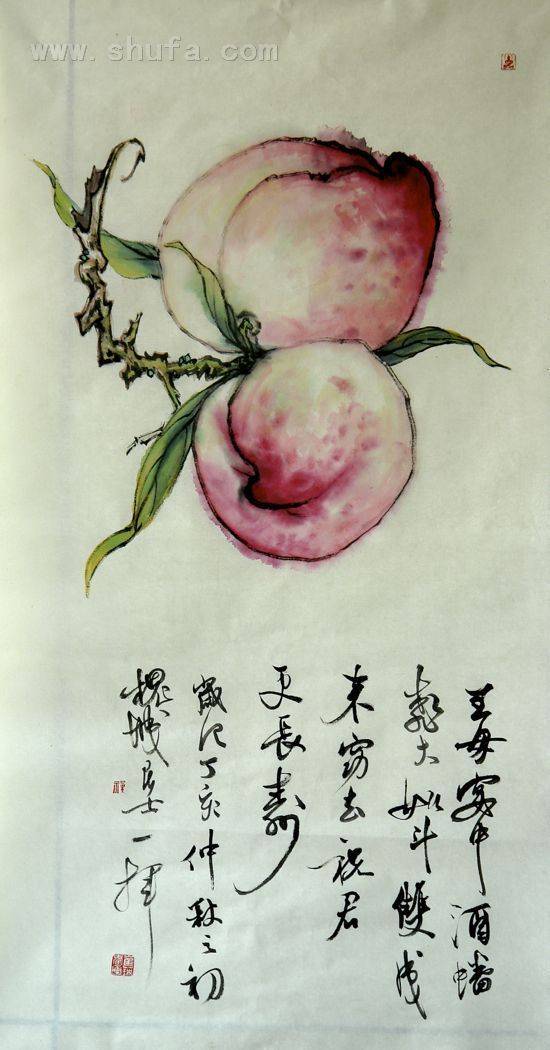 www.shufa.com
王母宴中酒蟠
桃大如斗雙成
来窃去祝君
更長壽
歲次丁亥仲秋之初
城居士一揮